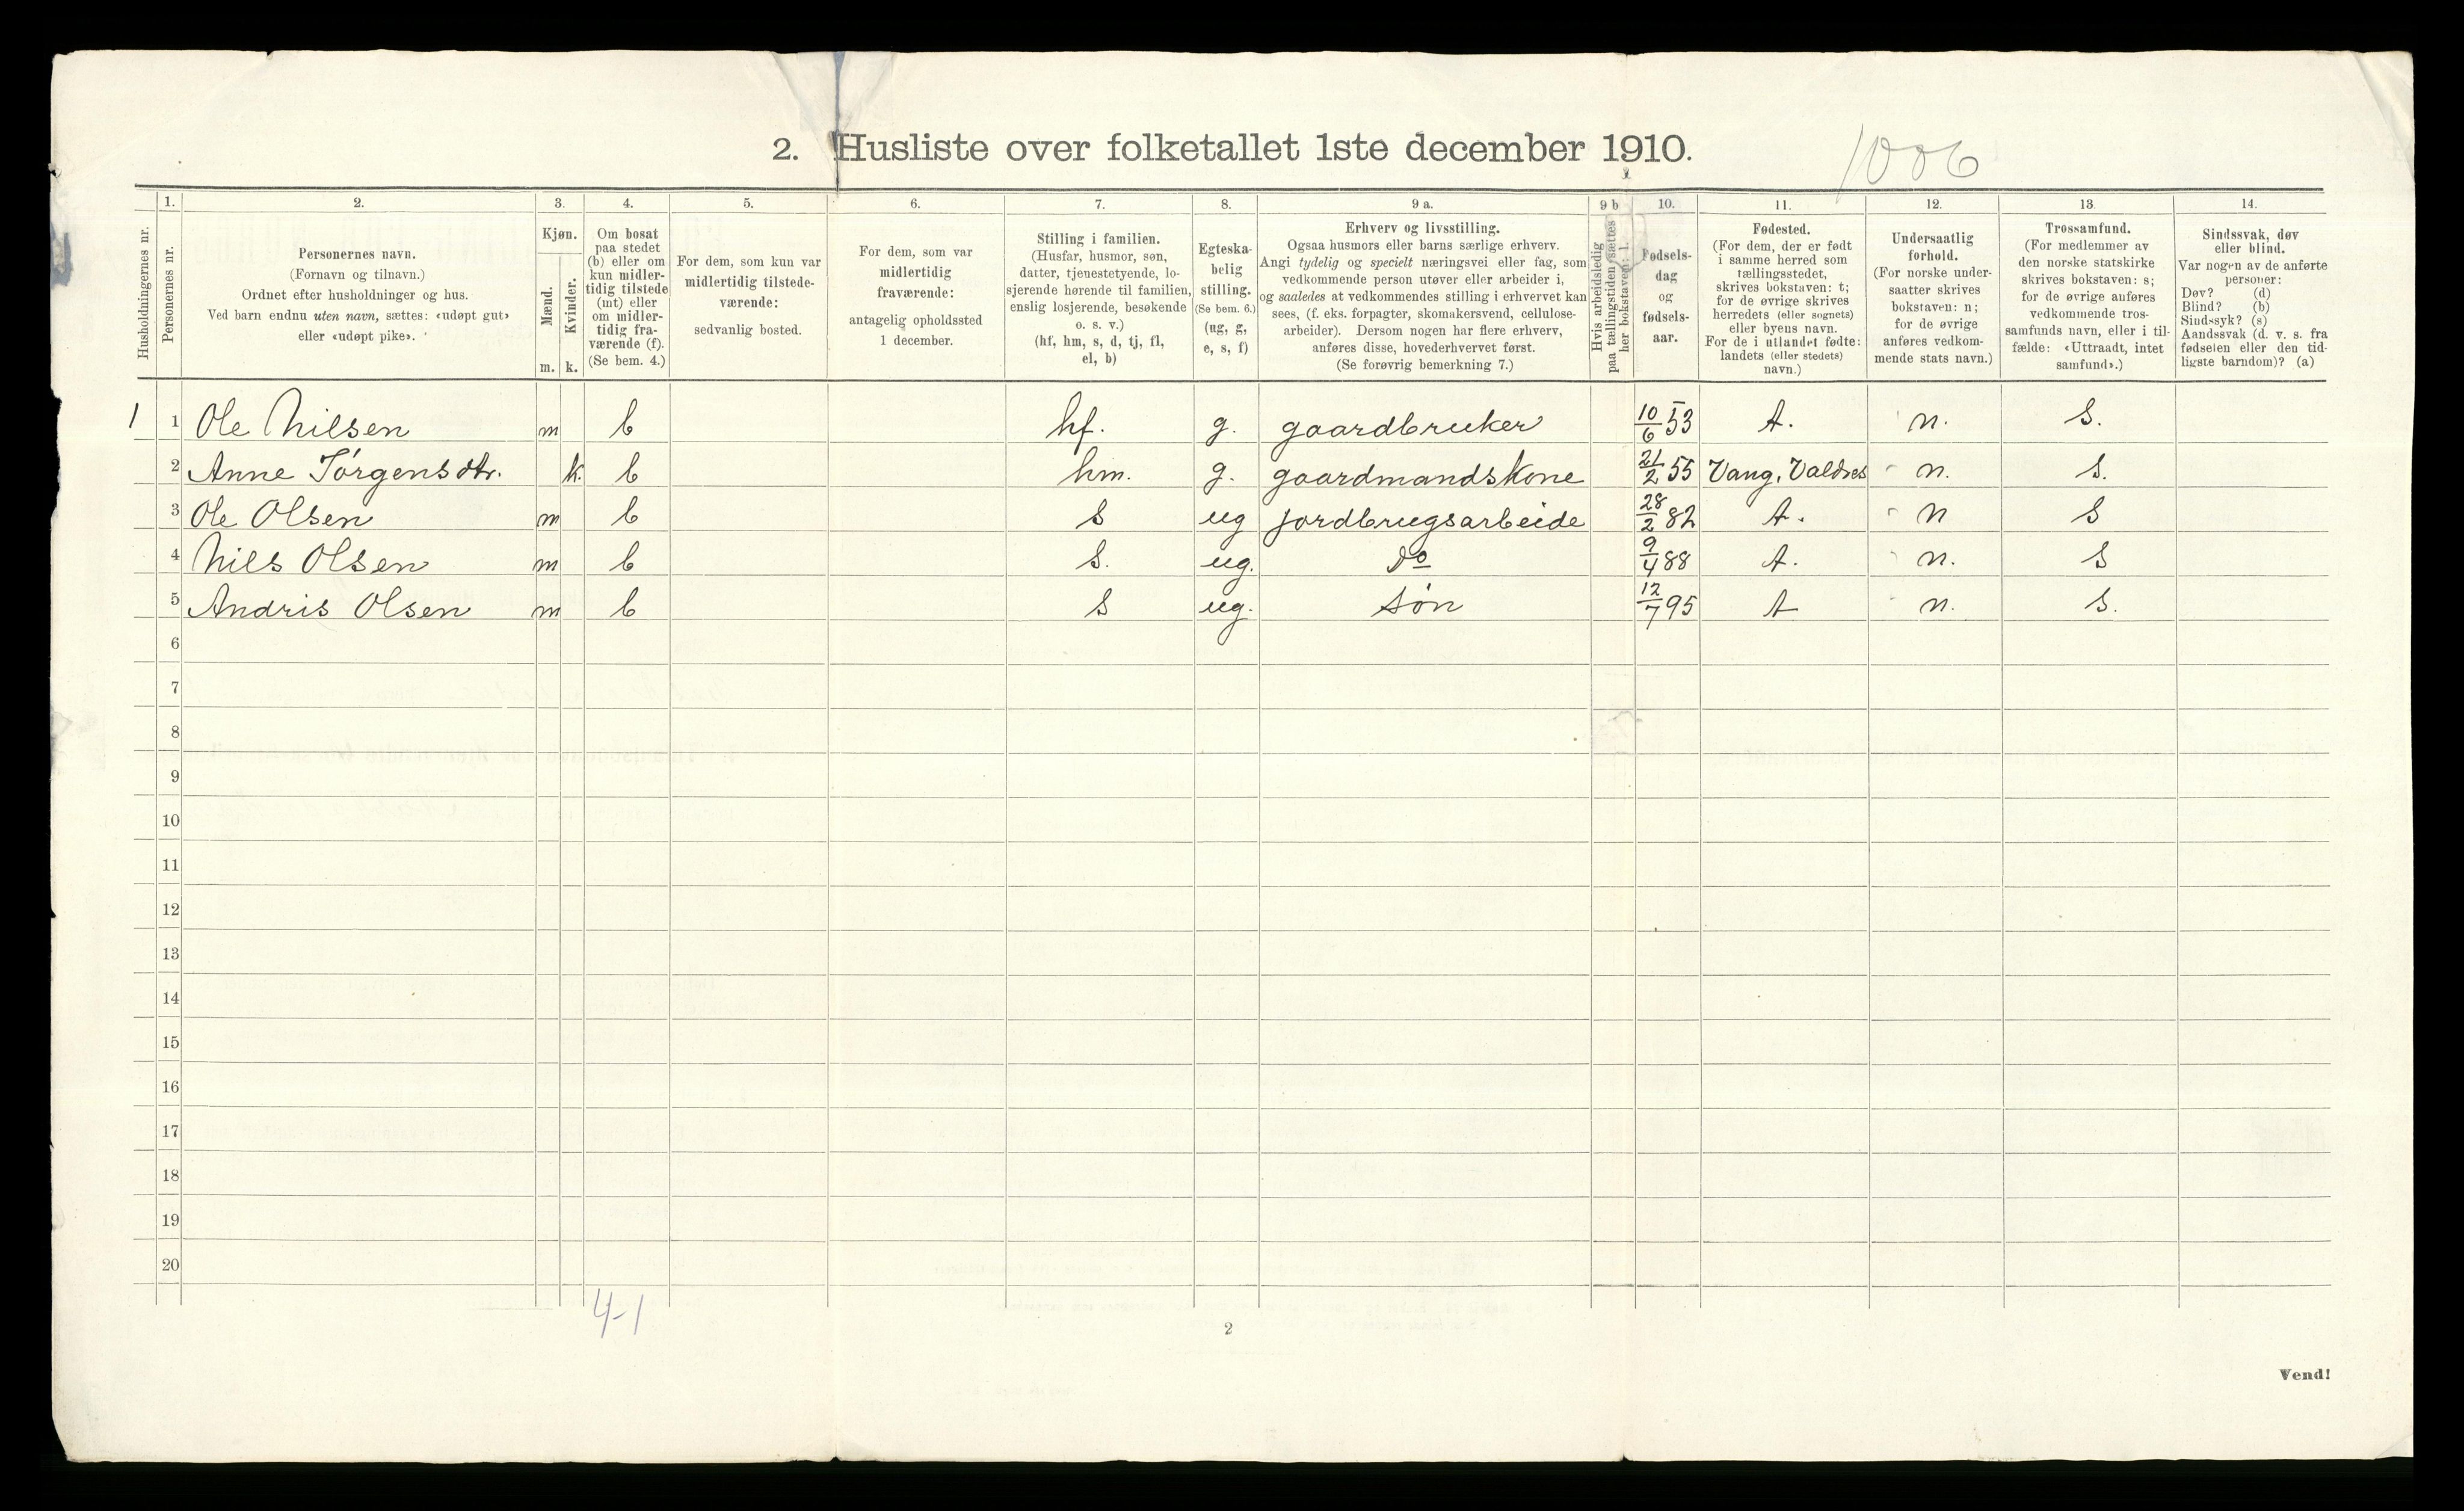 2. Husliste over folketallet 1ste december 1910.
1006
1. 2. 3. 4. 5. 6. 7. 8. 9 a. 9 b 10. 11. 12. 13. 14.
Husholdningernes nr.
Personernes nr.
Personernes navn.
(Fornavn og tilnavn.)
Ordnet efter husholdninger og hus.
Ved barn endnu uten navn, sættes: «udøpt gut»
eller «udøpt pike».
Kjøn.
Mænd.
Kvinder.
m. k.
Om bosat
paa stedet
(b) eller om
kun midler-
tidig tilstede
(mt) eller
om midler-
tidig fra-
værende (f).
(Se bem. 4.)
For dem, som kun var
midlertidig tilstede-
værende:
sedvanlig bosted.
For dem, som var
midlertidig
fraværende:
antagelig opholdssted
1 december.
Stilling i familien.
(Husfar, husmor, søn,
datter, tjenestetyende, lo-
sjerende hørende til familien,
enslig losjerende, besøkende
o. s. v.)
(hf, hm, s, d, tj, fl,
el, b)
Egteska-
belig
stilling.
(Se bem. 6.)
(ug, g,
e, s, f)
Erhverv og livsstilling.
Ogsaa husmors eller barns særlige erhverv.
Angi tydelig og specielt næringsvei eller fag, som
vedkommende person utøver eller arbeider i,
og saaledes at vedkommendes stilling i erhvervet kan
sees, (f. eks. forpagter, skomakersvend, cellulose-
arbeider). Dersom nogen har flere erhverv,
anføres disse, hovederhvervet først.
(Se forøvrig bemerkning 7.)
Hvis arbeidsledig
paa tællingstiden sættes
her bokstaven: l.
Fødsels-
dag
og
fødsels-
aar.
Fødested.
(For dem, der er født
i samme herred som
tællingsstedet,
skrives bokstaven: t;
for de øvrige skrives
herredets (eller sognets)
eller byens navn.
For de i utlandet fødte:
landets (eller stedets)
navn.)
Undersaatlig
forhold.
(For norske under-
saatter skrives
bokstaven: n;
for de øvrige
anføres vedkom-
mende stats navn.)
Trossamfund.
(For medlemmer av
den norske statskirke
skrives bokstaven: s;
for de øvrige anføres
vedkommende tros-
samfunds navn, eller i til-
fælde: «Uttraadt, intet
samfund».)
Sindssvak, døv
eller blind.
Var nogen av de anførte
personer:
Døv? (d)
Blind? (b)
Sindssyk? (s)
Aandssvak (d. v. s. fra
fødselen eller den tid-
ligste barndom)? (a)
1 1 Ole Nilsen m b hf. g. gaardbruker 10/6 53 t. n. s.
2 Anne Jørgensdtr. k. b hm. g. gaardmandskone 21/2 55 Vang, Valdres n. s.
3 Ole Olsen m b s ug jordbrugsarbeide 28/2 82 t. n s
4 Nils Olsen m b s. ug. do 9/4 88 t. n. s
5 Andris Olsen m b s ug. søn 12/7 95 t n. s.
6
7
8
9
10
11
12
13
14
15
16
17
18
19
20
4-1
2
Vend!